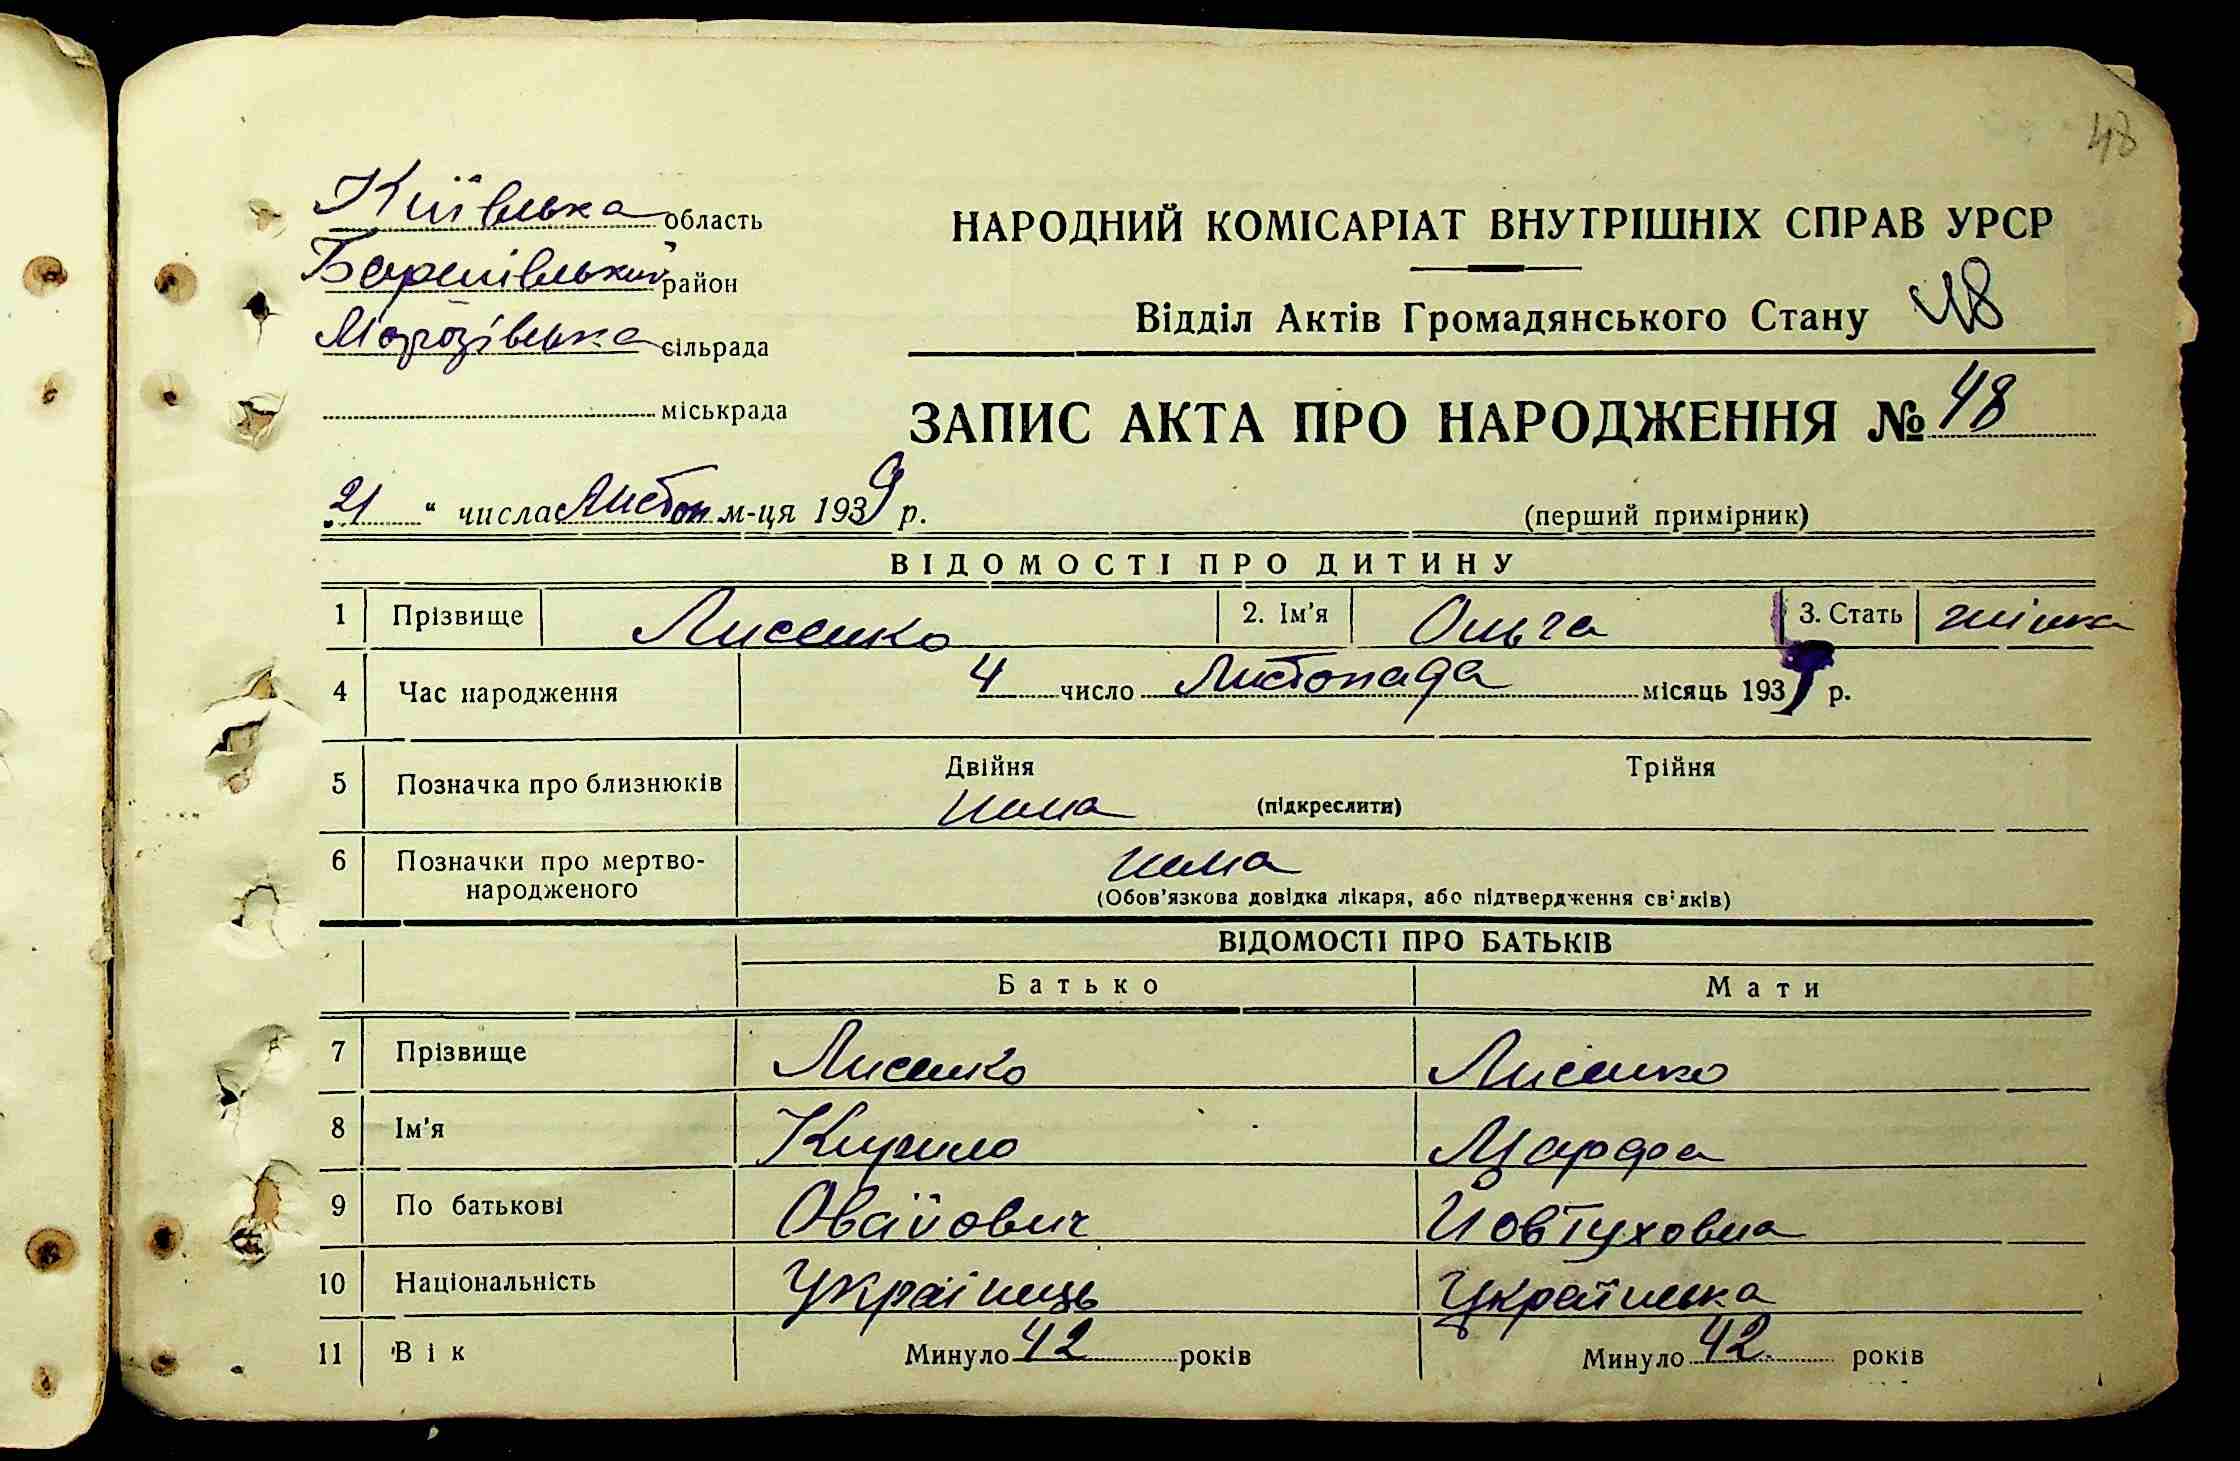 48
Київська область
Баришівський район
Морозівська сільрада
міськрада
НАРОДНИЙ КОМІСАРІАТ ВНУТРІШНІХ СПРАВ УРСР
Відділ Актів Громадянського Стану 48
ЗАПИС АКТА ПРО НАРОДЖЕННЯ № 48
„21“ числа Листоп м-ця 1939 р.
(перший примірник)
ВІДОМОСТІ ПРО ДИТИНУ
1 Прізвище Лисенко 2. Ім'я Ольга 3. Стать жінка
4 Час народження 4 число Листопада місяць 1939 р.
5 Позначка про близнюків Двійня Трійня
нема (підкреслити)
6 Позначки про мертво-
народженого нема
(Обов'язкова довідка лікаря, або підтвердження свідків)
ВІДОМОСТІ ПРО БАТЬКІВ
Батько Мати
7 Прізвище Лисенко Лисенко
8 Ім'я Кирило Марфа
9 По батькові Овсійович Йовтуховна
10 Національність Українець Українька
11 Вік Минуло 42 років Минуло 42 років